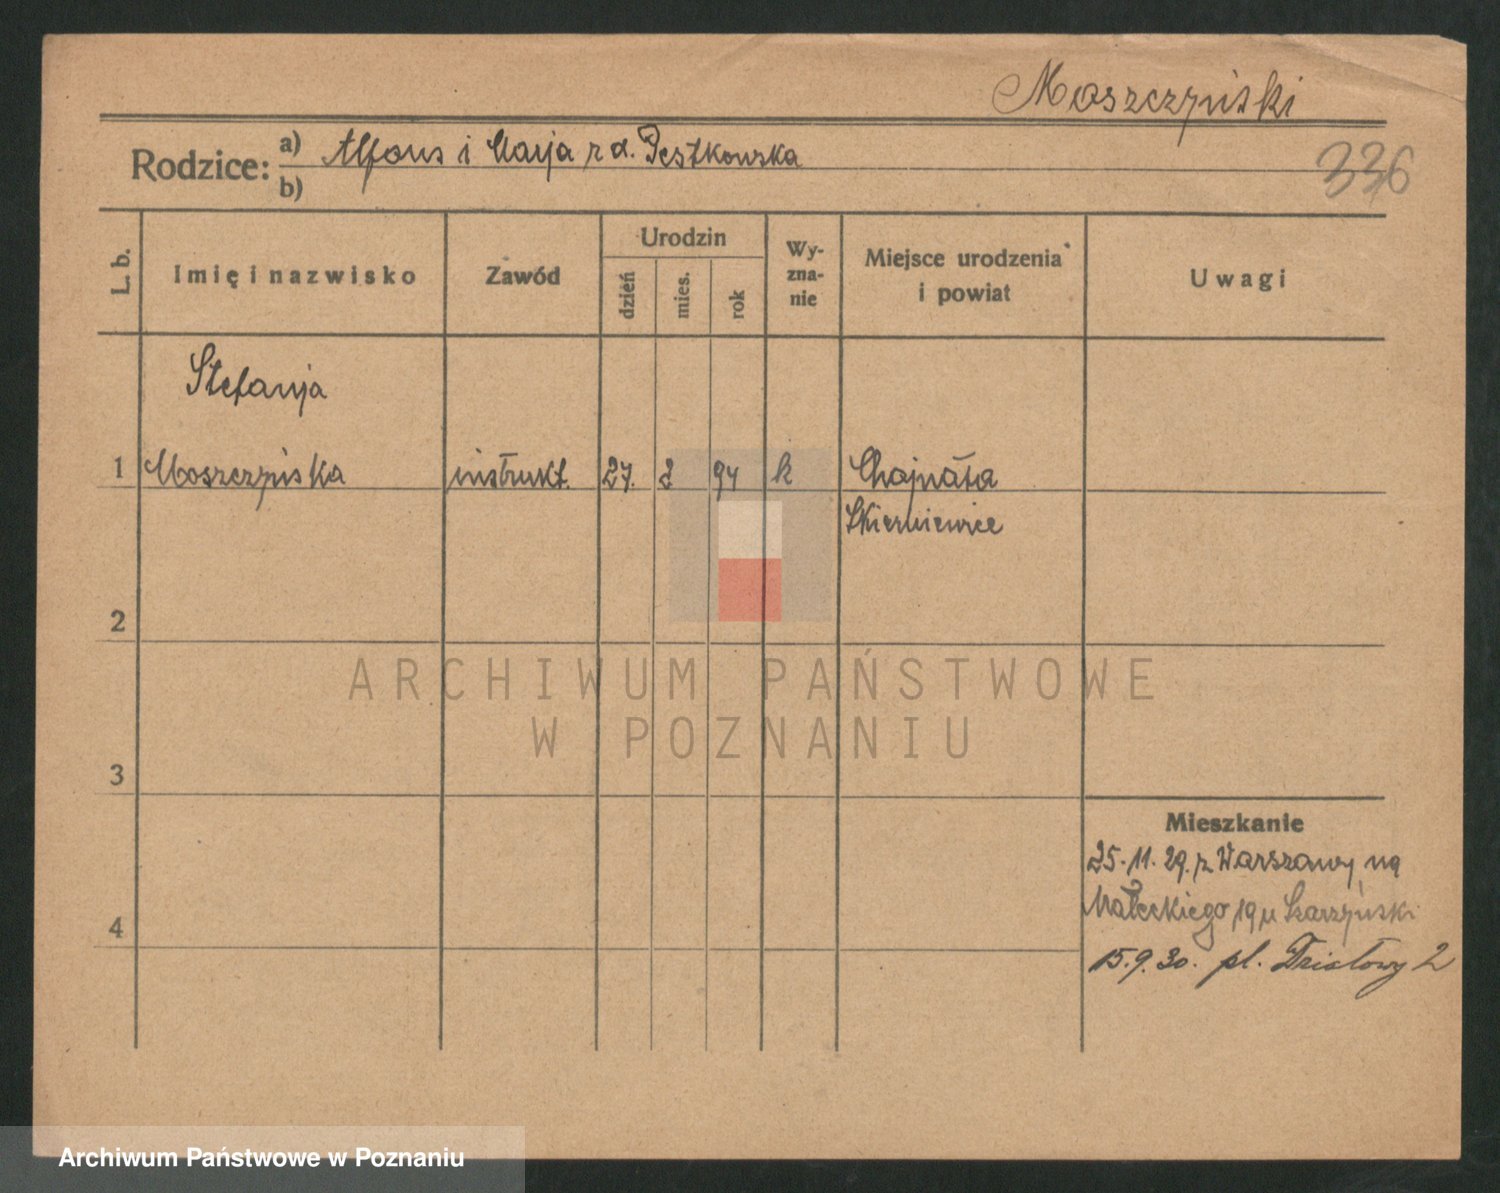 Moszczyński
Rodzice: a) Alfons i Marja z d. Pestkowska
b)
336
L. b.
Imię i nazwisko
Zawód
Urodzin
dzień
mies.
rok
Wy-
zna-
nie
Miejsce urodzenia
i powiat
Uwagi
Stefanja
1 Moszczyńska instrukt. 27. 2 94 k Chojnata
Skierniewice
2
3
4
Mieszkanie
25.11.29. z Warszawy na
Małeckiego 19 u Szarzyński
15.9.30. pl. Działowy 2
ARCHIWUM PAŃSTWOWE
W POZNANIU
Archiwum Państwowe w Poznaniu